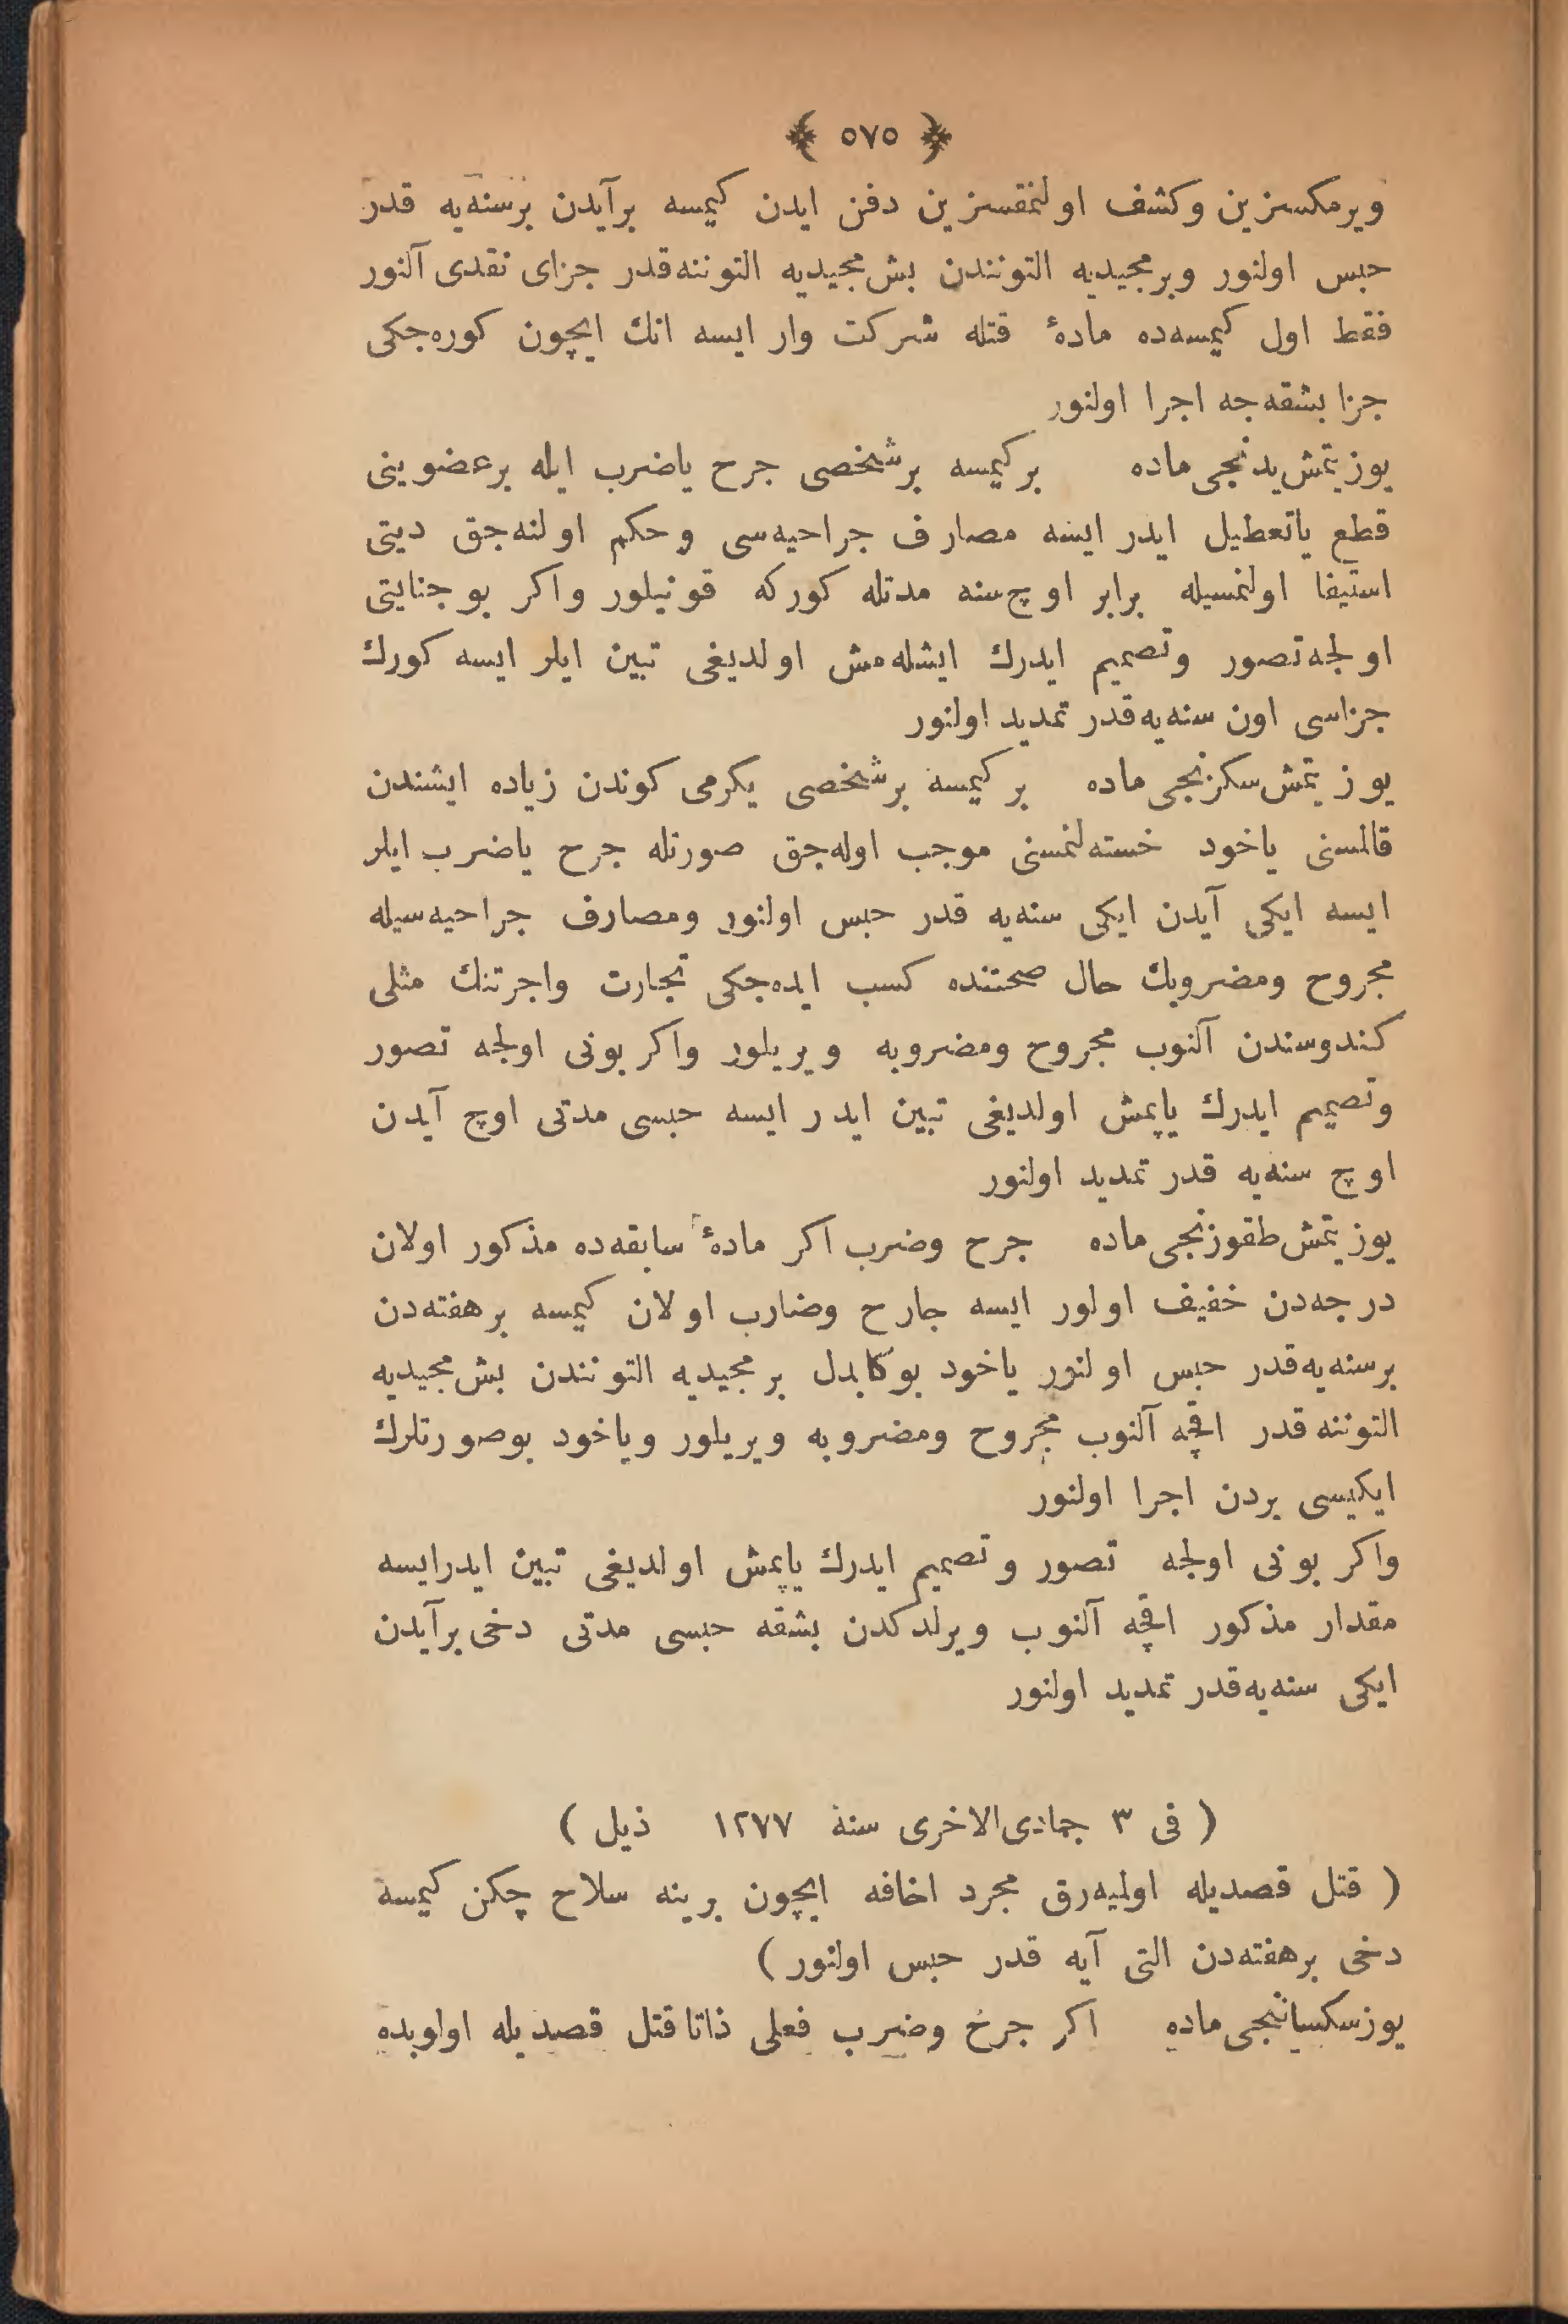 ﴿ ٥٧٥ ﴾
ویرمكسزین وكشف اولنمقسزین دفن ایدن كیمسه برآیدن برسنه‌یه قدر
حبس اولنور وبرمجیدیه التونندن بش‌مجیدیه التوننه‌قدر جزای نقدی آلنور
فقط اول كیمسه‌ده مادۀ قتله شركت وار ایسه انك ایچون كوره‌جكی
جزا بشقه‌جه اجرا اولنور
یوز یتمش‌یدنجی‌ماده بركیمسه برشخصی جرح یاضرب ایله برعضوینی
قطع یاتعطیل ایدر ایسه مصارف جراحیه‌سی وحكم اولنه‌جق دیتی
استیفا اولنمسیله برابر اوچ‌سنه مدتله كوركه قونیلور واكر بوجنایتی
اولجه‌تصور وتصمیم ایدرك ایشله‌مش اولدیغی تبین ایلر ایسه كورك
جزاسی اون سنه‌یه‌قدر تمدید اولنور
یوز یتمش‌سكزنجی‌ماده بر كیمسه برشخصی یكرمی كوندن زیاده ایشندن
قالمسنی یاخود خسته‌لنمسنی موجب اوله‌جق صورتله جرح یاضرب ایلر
ایسه ایكی آیدن ایكی سنه‌یه قدر حبس اولنور ومصارف جراحیه‌سیله
مجروح ومضروبك حال صحتنده كسب ایده‌جكی تجارت واجرتنك مثلی
كندوسندن آلنوب مجروح ومضروبه ویریلور واكر بونی اولجه تصور
وتصمیم ایدرك یاپمش اولدیغی تبین ایدر ایسه حبسی مدتی اوچ آیدن
اوچ سنه‌یه قدر تمدید اولنور
یوز یتمش‌طقوزنجی‌ماده جرح وضرب اكر مادۀ سابقه‌ده مذكور اولان
درجه‌دن خفیف اولور ایسه جارح وضارب اولان كیمسه برهفته‌دن
برسنه‌یه‌قدر حبس اولنور یاخود بوكابدل برمجیدیه التونندن بش‌مجیدیه
التوننه‌قدر اقچه آلنوب مجروح ومضروبه ویریلور ویاخود بوصورتلرك
ایكیسی بردن اجرا اولنور
واكر بونی اولجه تصور وتصمیم ایدرك یاپمش اولدیغی تبین ایدرایسه
مقدار مذكور اقچه آلنوب ویرلدكدن بشقه حبسی مدتی دخی برآیدن
ایكی سنه‌یه‌قدر تمدید اولنور
( فی ٣ جمادی‌الاخری سنة ١٢٧٧ ذیل )
( قتل قصدیله اولمیه‌رق مجرد اخافه ایچون برینه سلاح چكن كیمسه
دخی برهفته‌دن التی آیه قدر حبس اولنور )
یوزسكساننجی‌ماده اكر جرح وضرب فعلی ذاتاقتل قصدیله اولوبده